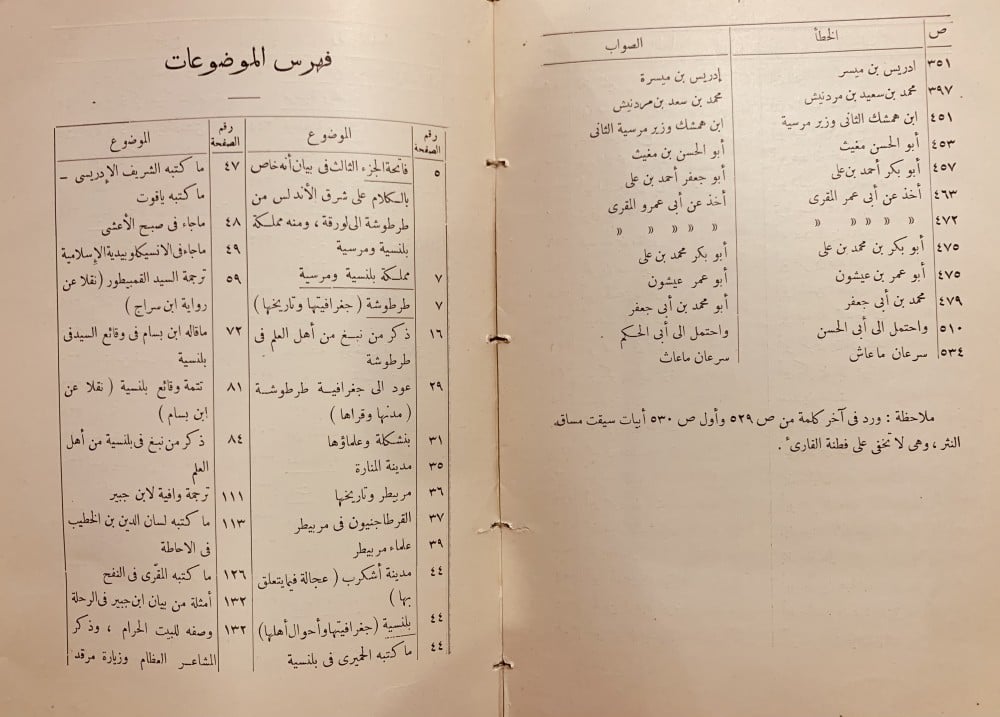 ص الخطأ الصواب
٣٥١ ادريس بن ميسر إدريس بن ميسرة
٣٩٧ محمد بن سعيد بن مردنيش محمد بن سعد بن مردنيش
٤٥١ ابن همشك الثانى وزير مرسية ابن همشك وزير مرسية الثانى
٤٥٣ أبو الحسن مغيث أبو الحسن بن مغيث
٤٥٧ أبو بكر أحمد بن على أبو جعفر أحمد بن على
٤٦٣ أخذ عن أبى عمر المقرى أخذ عن أبى عمرو المقرى
٤٧٢ » » » » » » » » » »
٤٧٥ أبو بكر بن محمد بن على أبو بكر محمد بن على
٤٧٥ أبو عمر بن عيشون أبو عمر عيشون
٤٧٩ محمد بن أبى جعفر أبو محمد بن أبى جعفر
٥١٠ واحتمل الى أبى الحسن واحتمل الى أبى الحكيم
٥٣٤ سرعان ماعاش سرعان ماعاث
ملاحظة : ورد فى آخر كلمة من ص ٥٢٩ وأول ص ٥٣٠ أبيات سيقت مساق
النثر ، وهى لا تخفى على فطنة القارىء .
فهرس الموضوعات
رقم الصفحة الموضوع
٥ فاتحة الجزء الثالث فى بيان أنه خاص
بالكلام على شرق الأندلس من
طرطوشة الى لورقة ، ومنه مملكة
بلنسية ومرسية
٧ مملكة بلنسية ومرسية
٧ طرطوشة ( جغرافيتها وتاريخها )
١٦ ذكر من نبغ من أهل العلم فى
طرطوشة
٢٩ عود الى جغرافية طرطوشة
( مدنها وقراها )
٣١ بنشكلة وعلماؤها
٣٥ مدينة المنارة
٣٦ مربيطر وتاريخها
٣٧ القرطاجنيون فى مربيطر
٣٩ علماء مربيطر
٤٤ مدينة أشكرب ( عجالة فيما يتعلق
بها )
٤٤ بلنسية ( جغرافيتها وأحوال أهلها )
٤٤ ما كتبه الحميرى فى بلنسية
رقم الصفحة الموضوع
٤٧ ما كتبه الشريف الإدريسى –
ما كتبه ياقوت
٤٨ ماجاء فى صبح الأعشى
٤٩ ماجاء فى الانسيكلوبيدية الإسلامية
٥٩ ترجمة السيد القمبيطور ( نقلا عن
رواية ابن سراج )
٧٢ ماقاله ابن بسام فى وقائع السيد فى
بلنسية
٨١ تتمة وقائع بلنسية ( نقلا عن
ابن بسام )
٨٤ ذكر من نبغ فى بلنسية من أهل
العلم
١١١ ترجمة وافية لابن جبير
١١٣ ما كتبه لسان الدين بن الخطيب
فى الاحاطة
١٢٦ ما كتبه المقّرى فى النفح
١٣٢ أمثلة من بيان ابن جبير فى الرحلة
١٣٢ وصفه للبيت الحرام ، وذكر
المشاعر العظام وزيارة مرقد